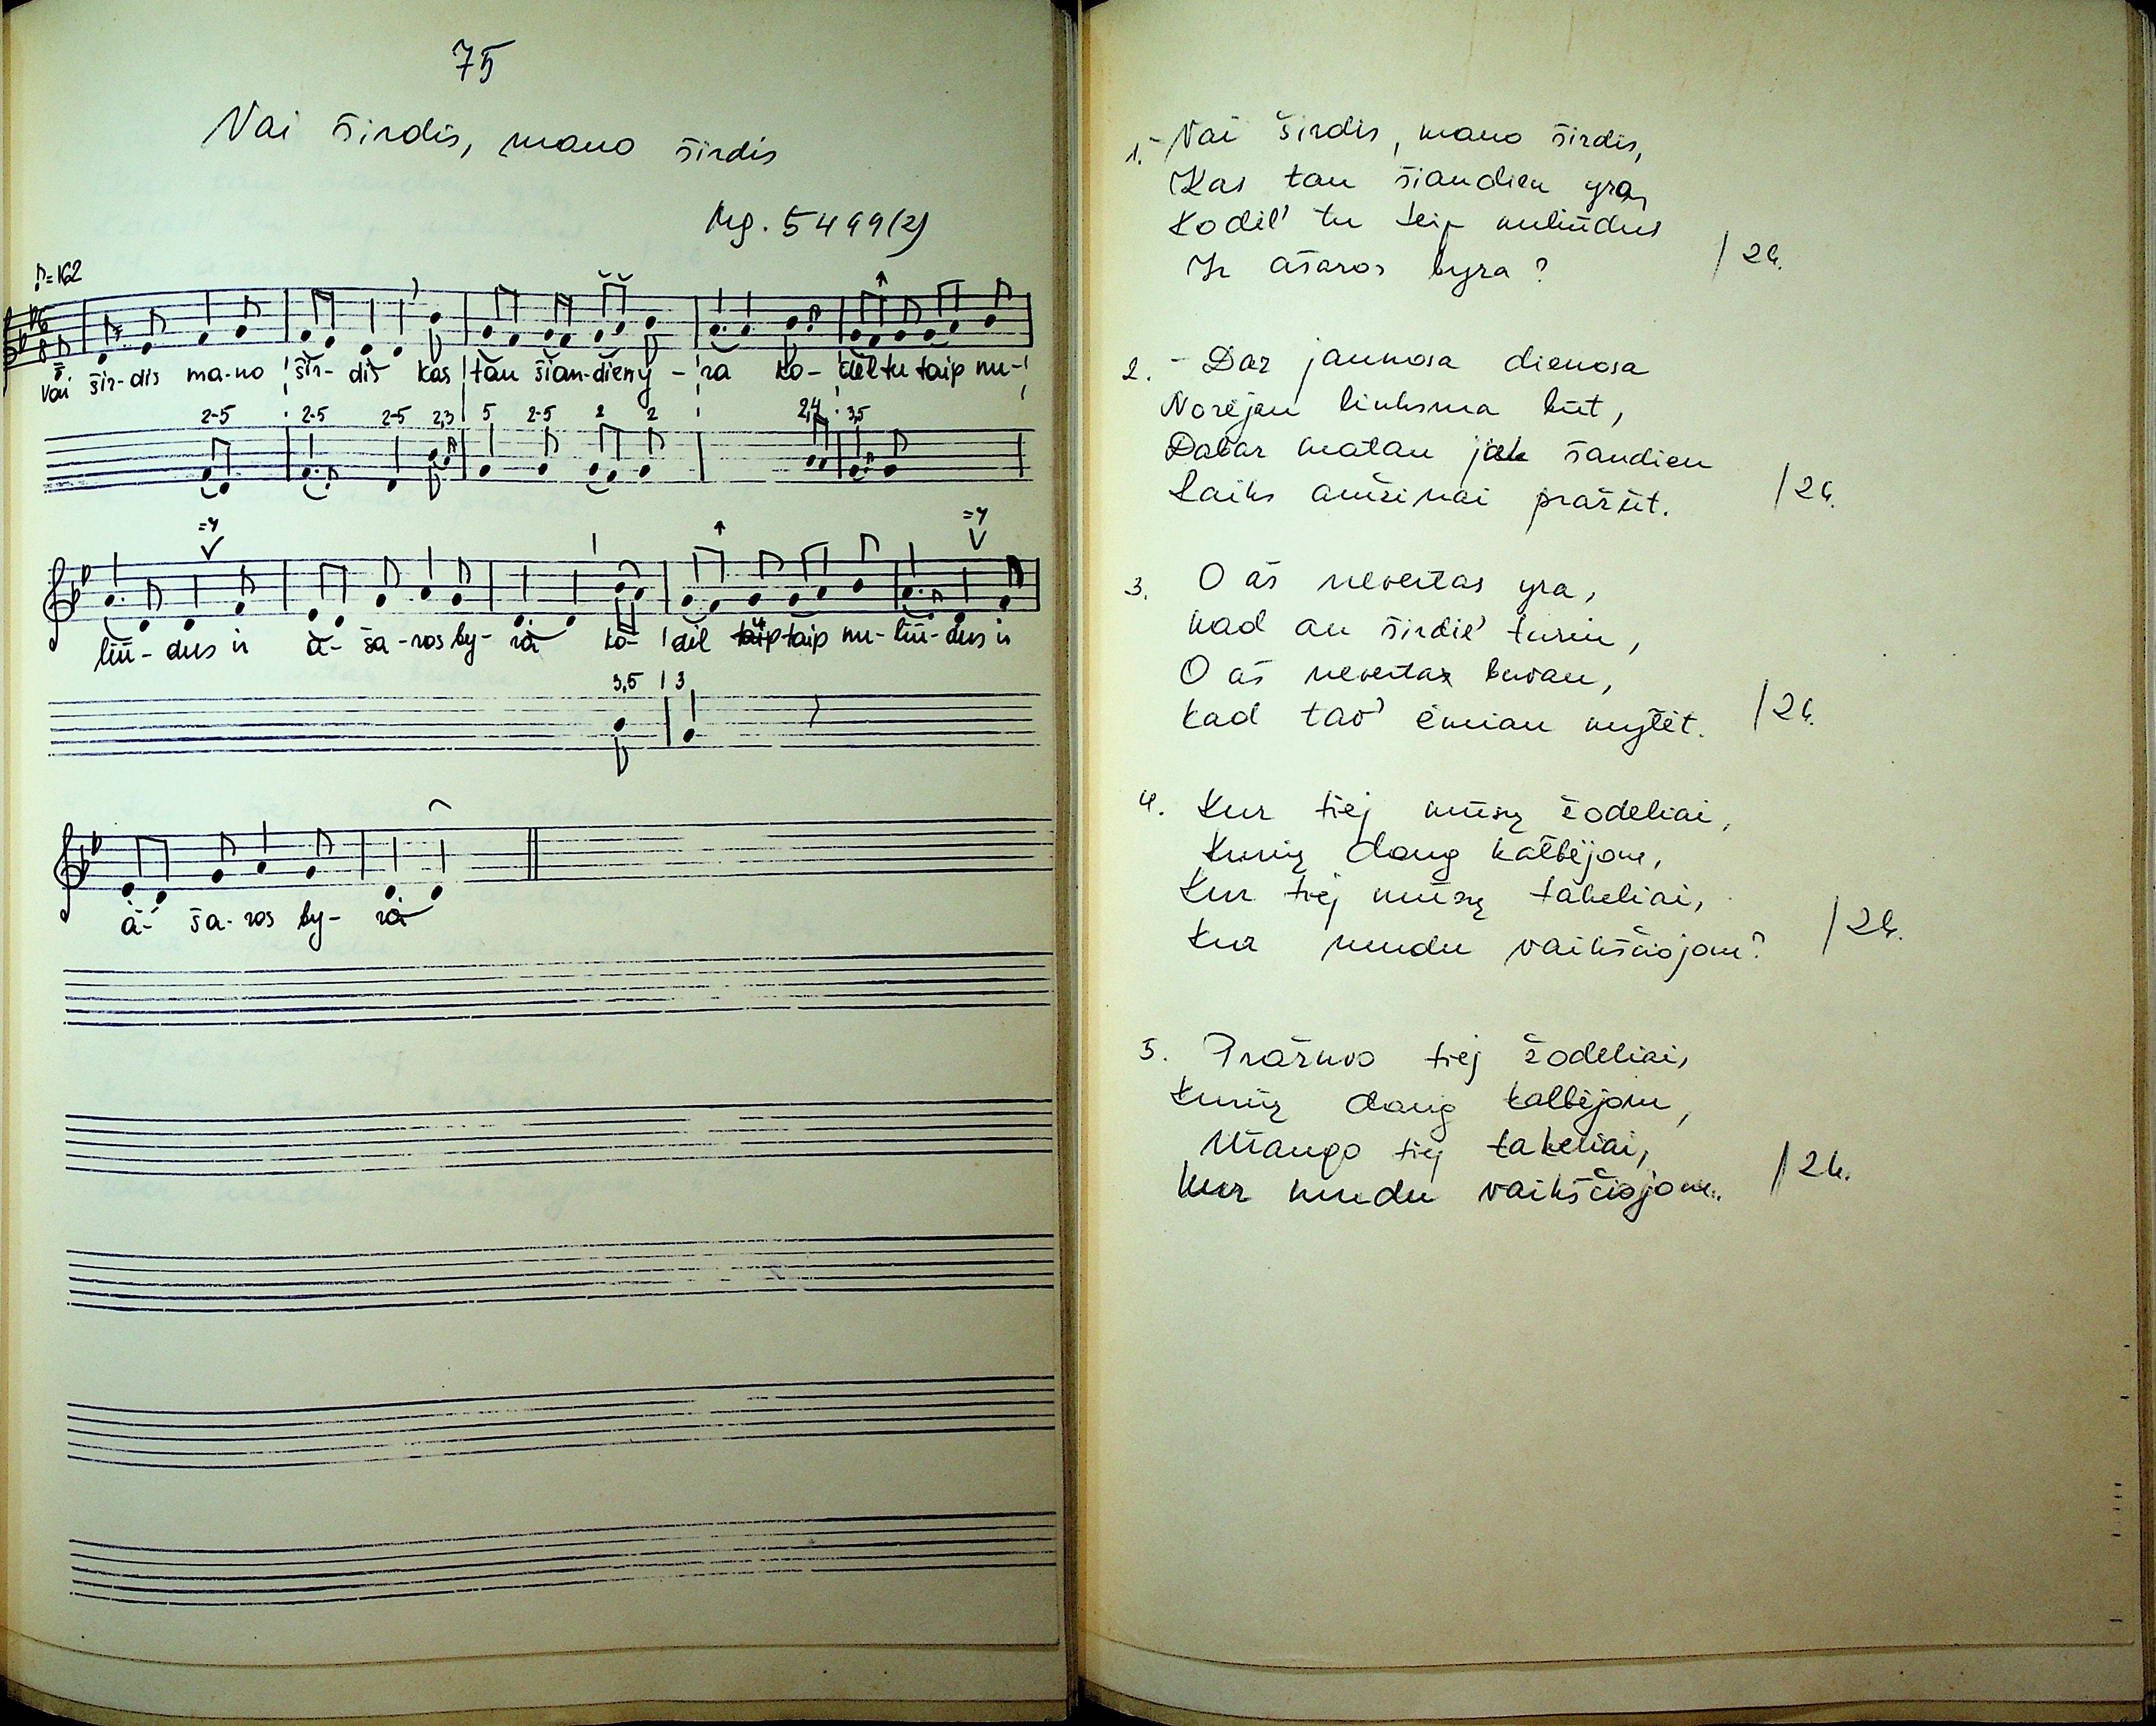 75
Vai širdis, mano širdis
Mg. 5499(2)
♪=162
Vai šir-dis ma-no šir-dis kas tau šian-dien y-ra ko-dėl tu taip nu-
2-5 2-5 2-5 2,3 5 2-5 2 2 2,4 3,5
=7 =7
liū-dus ir a-ša-ros by-ra ko-dėl taip nu-liū-dus ir
3,5 3
a-ša-ros by-ra
1. - Vai širdis, mano širdis,
Kas tau šiandien yra,
Kodėl' tu teip nuliūdus
Ir ašaros byra? /2k.
2. - Dar jaunosa dienosa
Norėjau linksma būt,
Dabar matau jak šandien
Laiks amžinai pražūt. /2k.
3. O aš nevertas yra,
Kad an širdie' turiu,
O aš nevertas buvau,
Kad tav' ėmiau mylėt. /2k.
4. Kur tiej mūsų žodeliai,
Kurių daug kalbėjom,
Kur tiej mūsų takeliai,
Kur mudu vaikščiojom? /2k.
5. Pražuvo tiej žodeliai,
Kurių daug kalbėjom,
Užaugo tiej takeliai,
Kur mudu vaikščiojom. /2k.